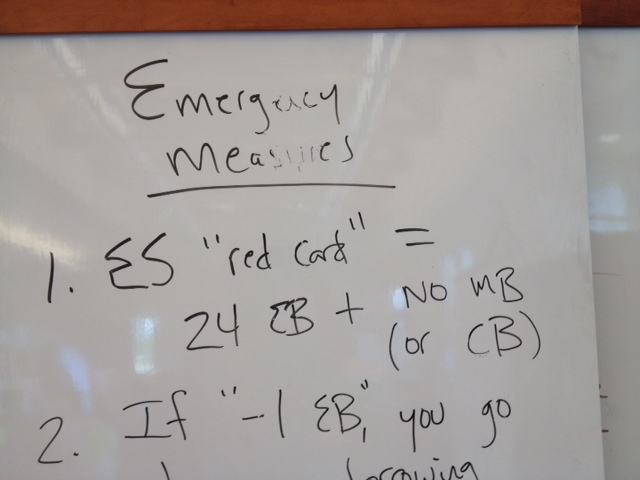 Emergency
Measures
1. ES "red card" =
24 EB + NO MB
(or CB)
2. If "-1 EB", you go
borrowing